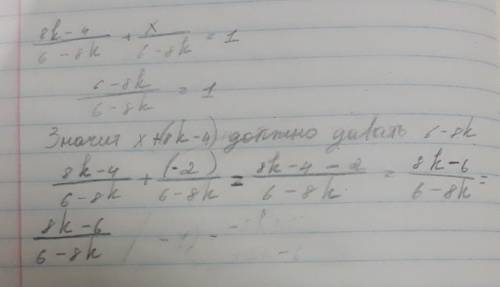 (8k-4)/(6-8k) + x/(6-8k) = 1
(6-8k)/(6-8k) = 1
Значит x+(8k-4) должно давать 6-8k
(8k-4)/(6-8k) + (-2)/(6-8k) = (8k-4-2)/(6-8k) = (8k-6)/(6-8k) =
(8k-6)/(6-8k)